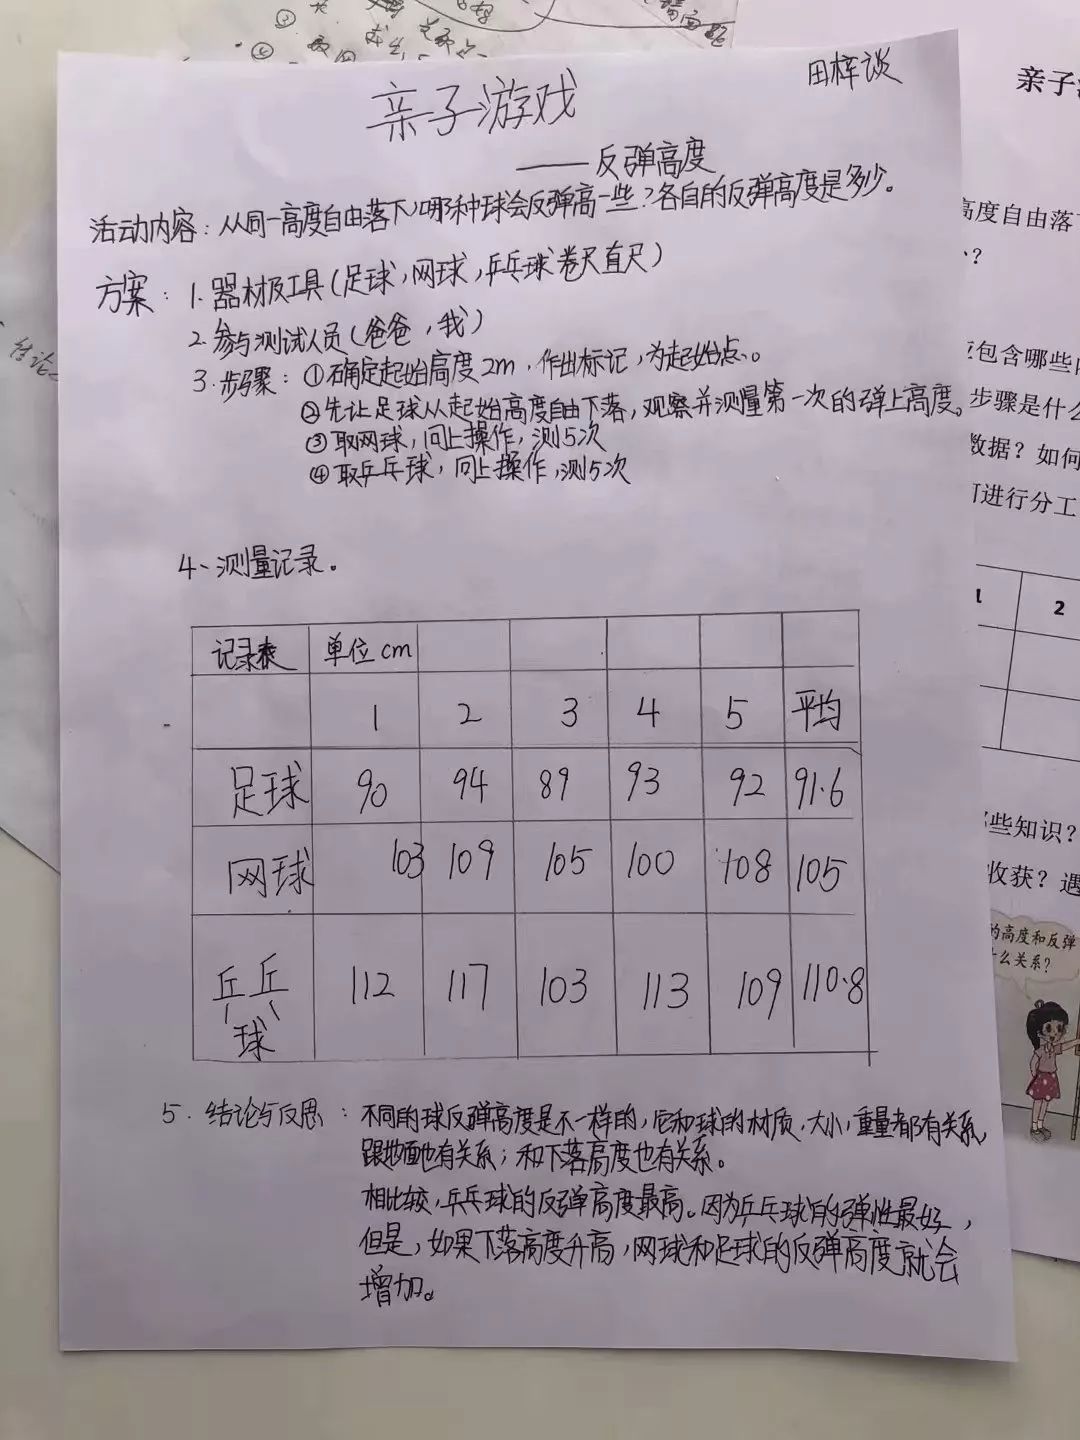 田梓谈
亲子游戏
——反弹高度
活动内容：从同一高度自由落下，哪种球会反弹高一些？各自的反弹高度是多少。
方案：1. 器材及工具(足球,网球,乒乓球卷尺直尺)
2. 参与测试人员(爸爸,我)
3. 步骤：①确定起始高度2m，作出标记，为起始点.。
②先让足球从起始高度自由下落，观察并测量第一次的弹上高度。
③取网球，同上操作，测5次
④取乒乓球，同上操作，测5次
4、测量记录。
记录表 单位cm
1 2 3 4 5 平均
足球 90 94 89 93 92 91.6
网球 103 109 105 100 108 105
乒乓球 112 117 103 113 109 110.8
5. 结论与反思：不同的球反弹高度是不一样的，它和球的材质,大小,重量都有关系,
跟地面也有关系；和下落高度也有关系。
相比较，乒乓球的反弹高度最高。因为乒乓球的弹性最好，
但是，如果下落高度升高，网球和足球的反弹高度就会
增加。
亲子
高度自由落
？
包含哪些
步骤是什
数据？如何
进行分工
1 2
些知识？
收获？遇
的高度和反弹
什么关系？
结论